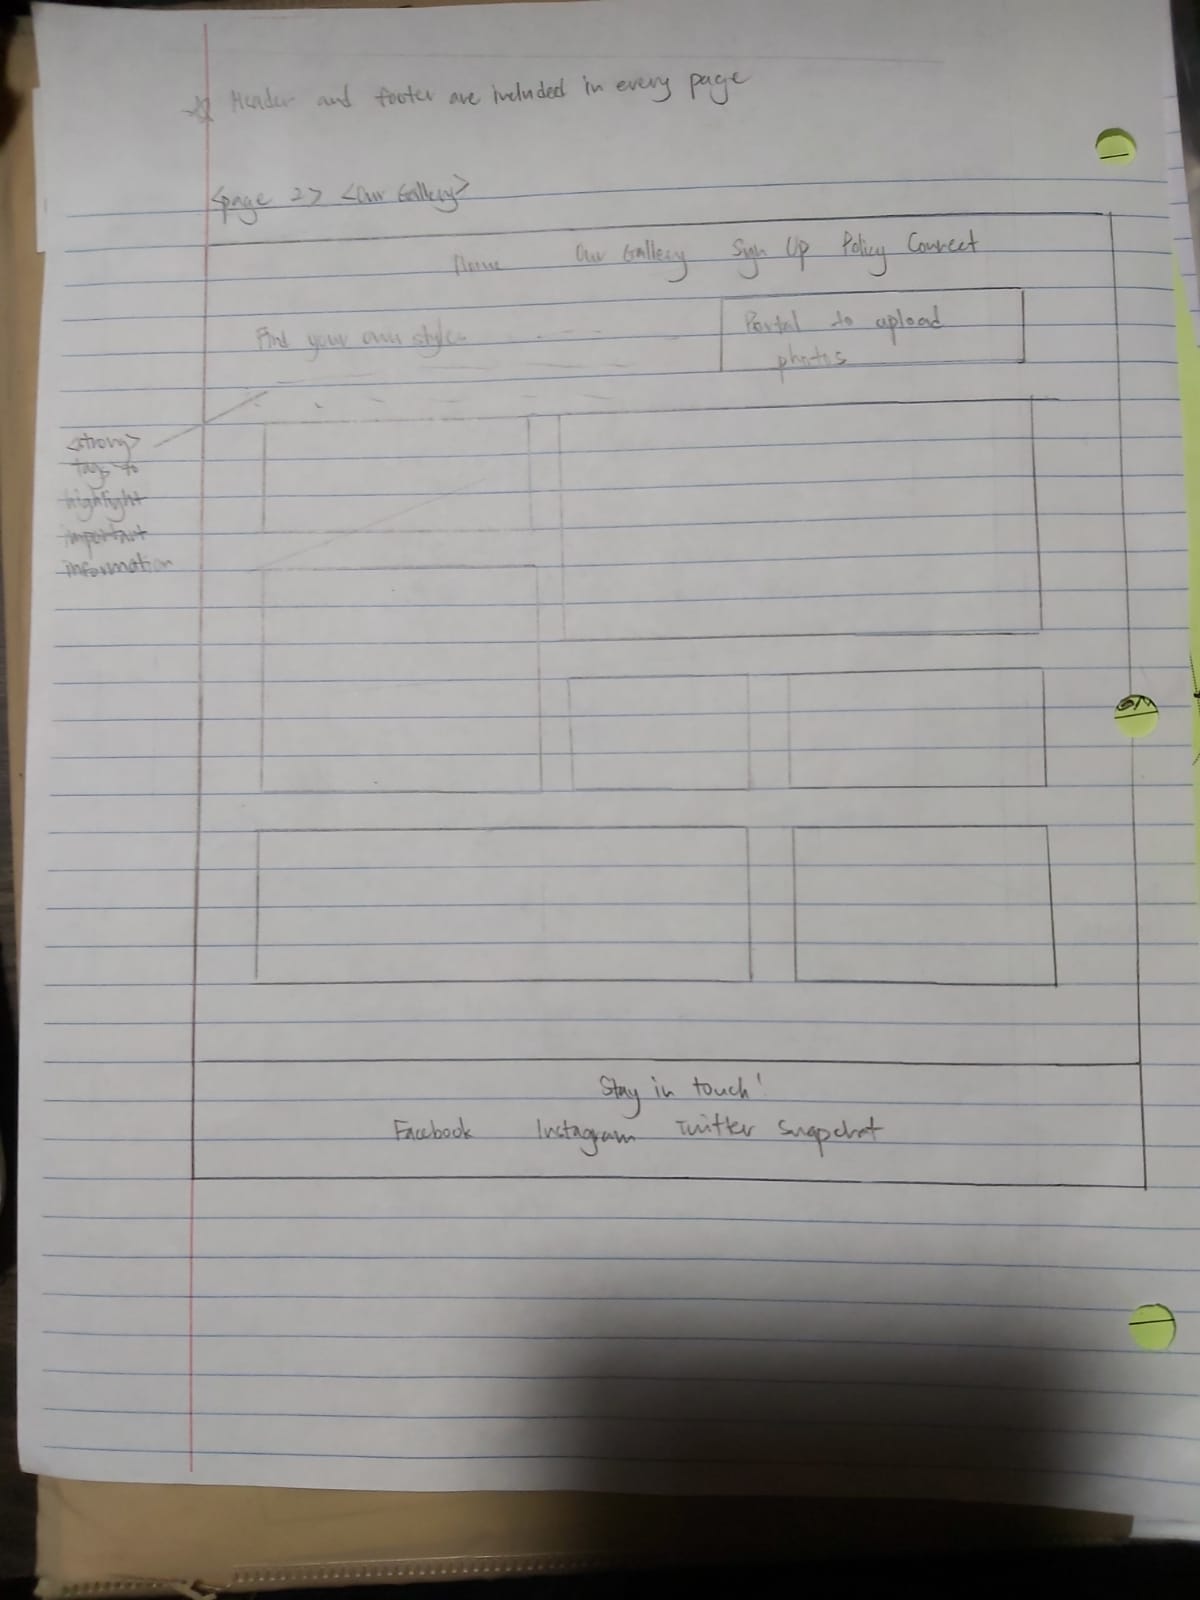 ☆ Header and footer are included in every page
<page 2> <Our Gallery>
Home Our Gallery Sign Up Policy Connect
Find your own style
Portal to upload
photos
<strong>
tags to
highlight
important
information
Stay in touch!
Facebook Instagram Twitter Snapchat